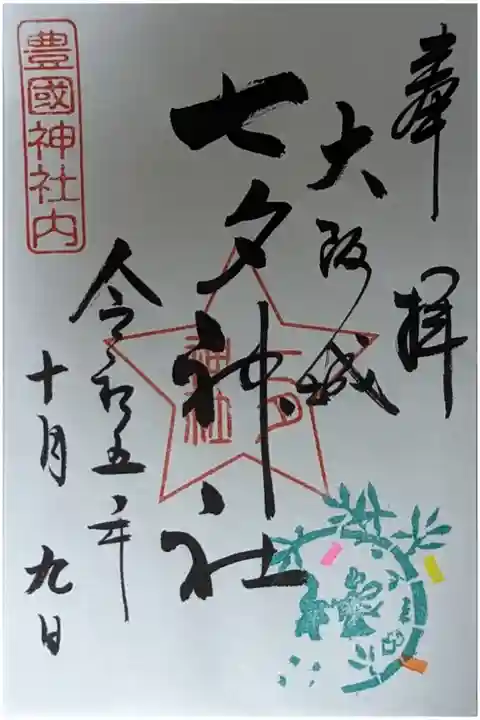 奉拝
大阪城
七夕神社
七夕神社
令和五年
十月九日
豊國神社内